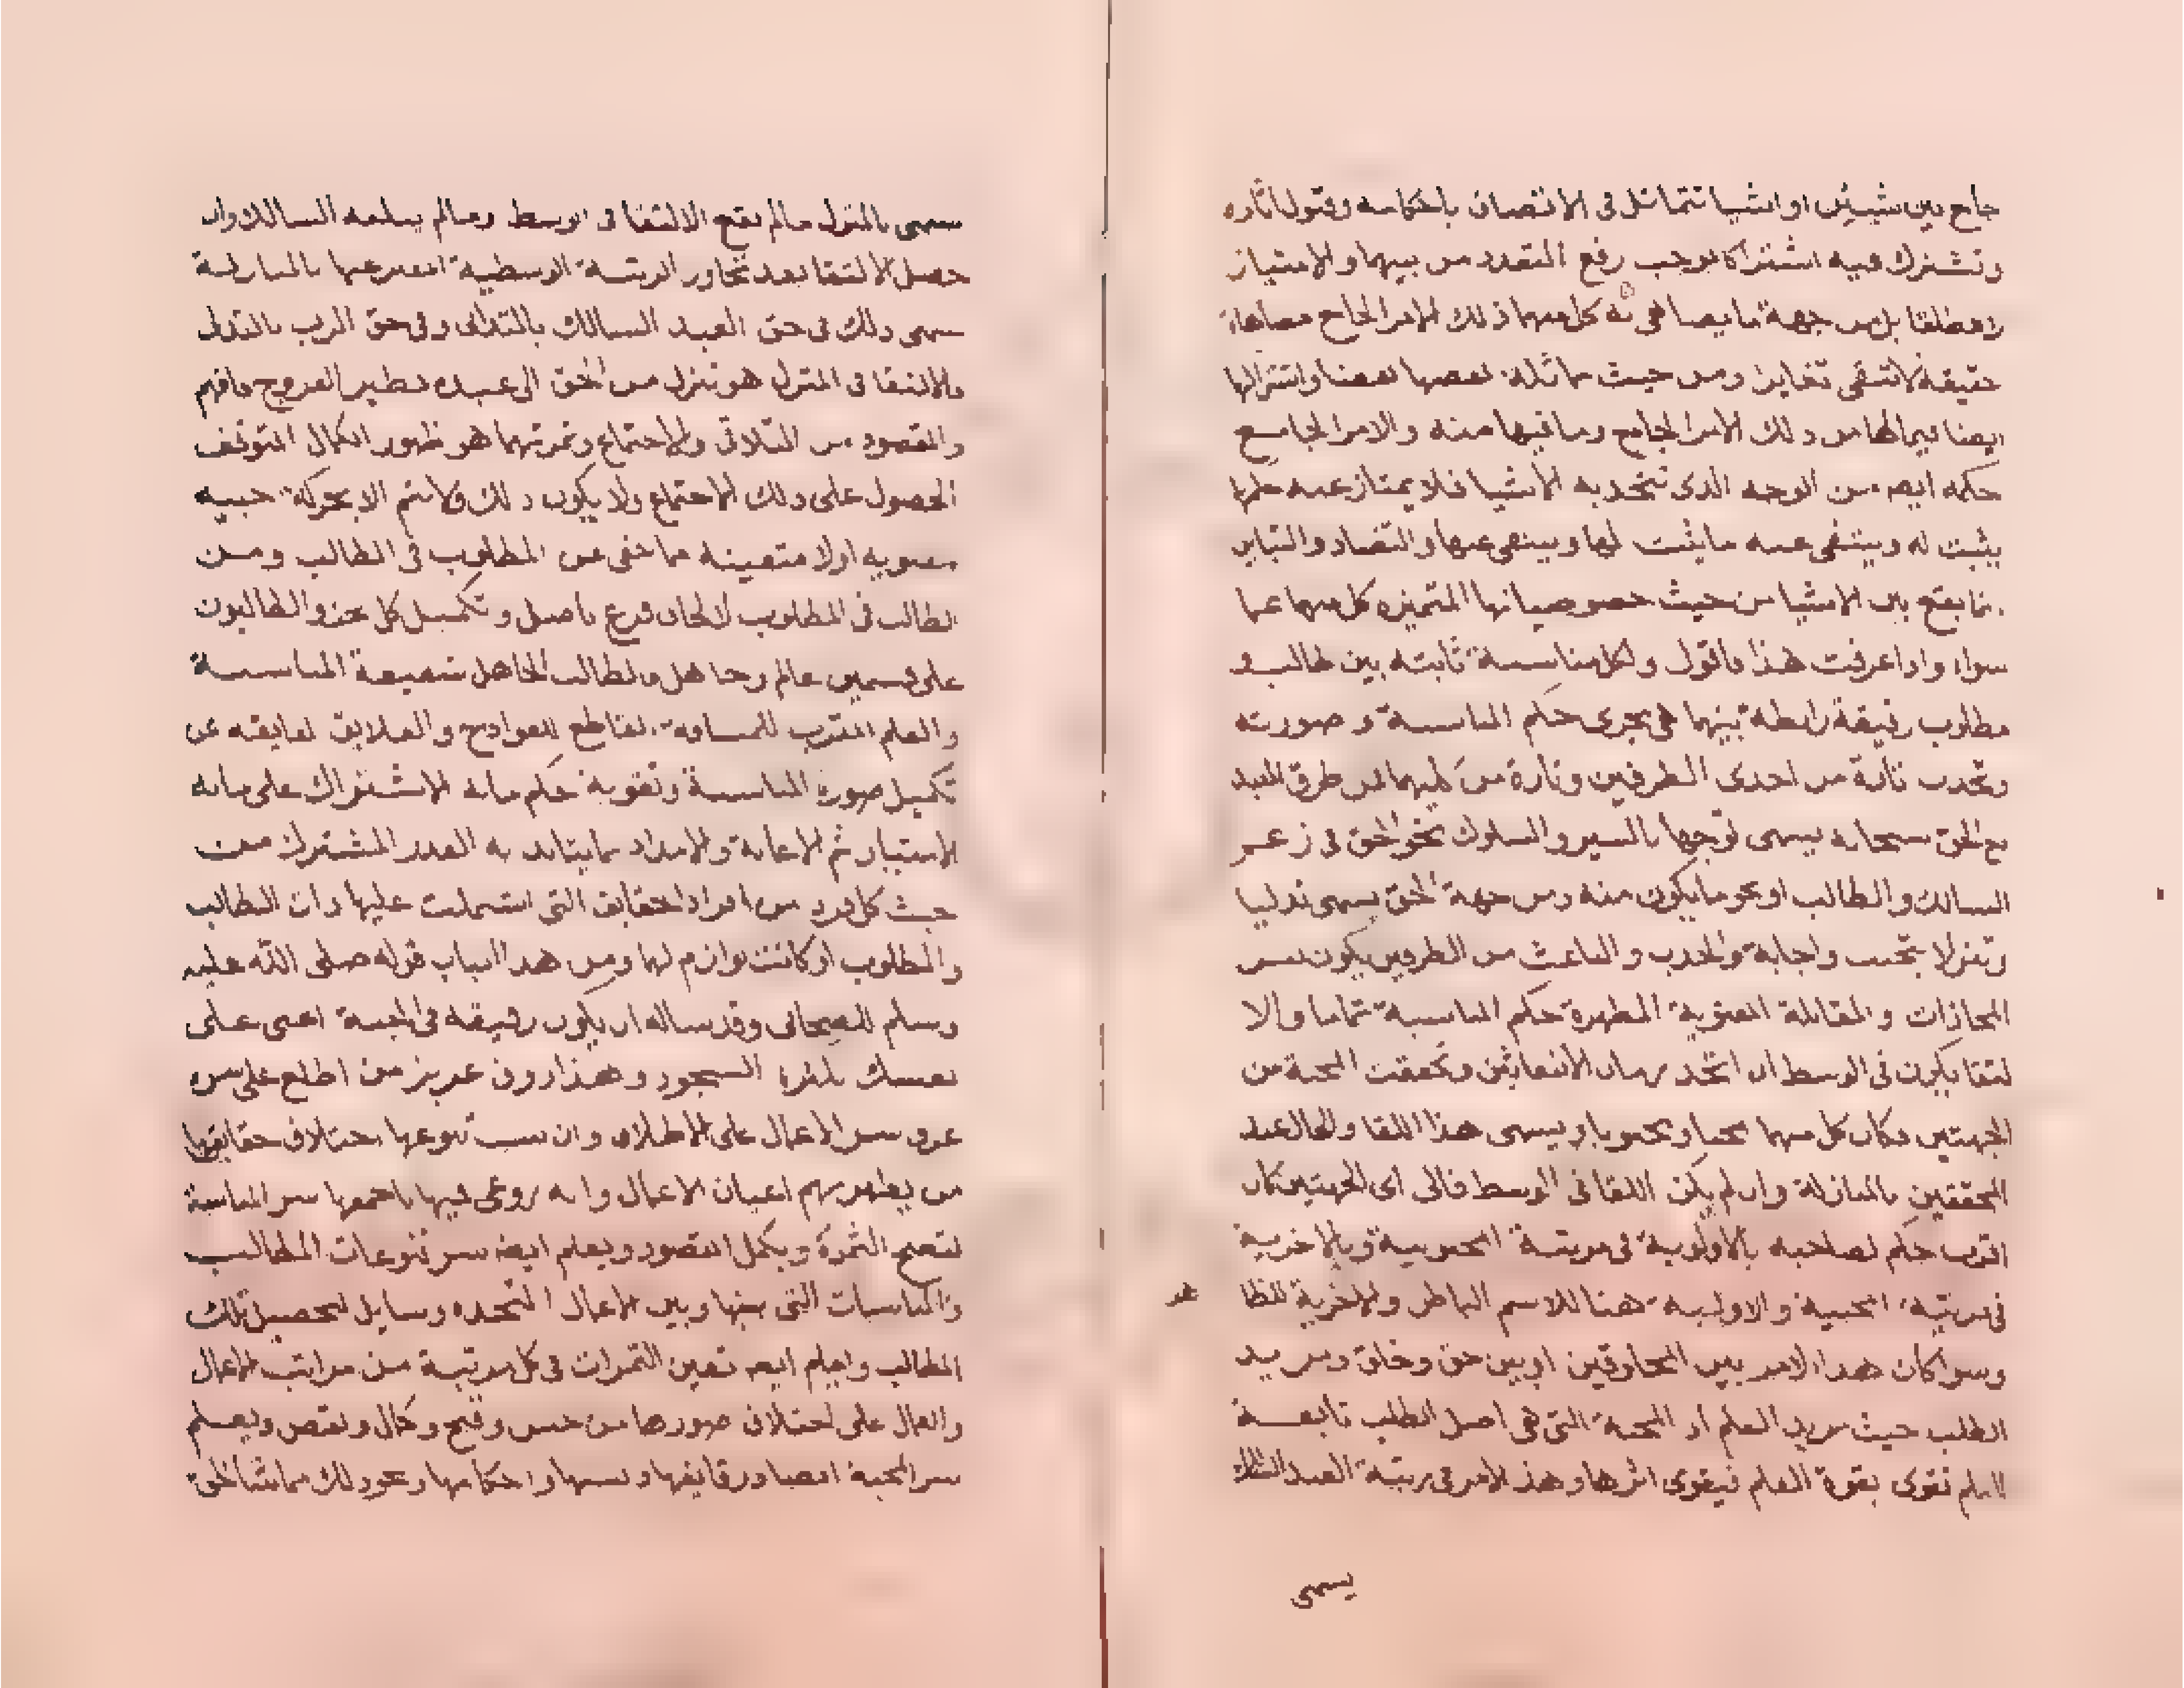 جامع بين شيئين او اشيا تتماثل فى الاتصاف باحكامه وقبول اثاره
وتشترك فيه اشتراكا يوجب رفع التعدد من بينهما والامتياز
لا مطلقا بل من جهة ما يضاهى به كل منهما ذلك الامر الجامع مضاهاة
حقيقة لا تنتفى تغاير ومن حيث مماثلة بعضها بعضا واشتراكها
ايضا فيما لها من ذلك الامر الجامع وما فيها منه والامر الجامع
حكمه ايضا من الوجه الذى تتحد به الاشيا فلا يمتاز عنه حكمها
يثبت له وينتفى عنه ما يثبت لها وينتفى عنها والتضاد والتباين
انما يقع بين الاشيا من حيث خصوصياتها المتميزه كل منها عما
سواه واذا عرفت هذا فاقول ولكل مناسبة ثابته بين طالب و
مطلوب رقيقة رابطة بينهما هى مجرى حكم المناسبة و صورته
وتجذب تارة من احدى الطرفين وتارة من كليهما فمن طرق العبد
مع الحق سبحانه يسمى توجها بالسير والسلوك نحو الحق فى زعم
السالك والطالب او نحو ما يكون منه ومن جهة الحق يسمى تدليا
وتنزلا بتحبب واجابة والجذب والباعث من الطرفين يكون بسر
المحازات والمقابلة المعنوية المظهرة حكم المناسبة تماما والا
لتقا يكون فى الوسط ان اتحد زمان الانبعاثين وتحققت المحبة من
الجهتين فكان كل منهما محبا ومحبوبا ويسمى هذا اللقا والحال عند
المحققين بالمنازلة وان لم يكن اللقا فى الوسط فالى اى الجهتين كان
اقرب حكم لصاحبه بالاولوية فى مرتبة المحبوبية وبالاخرية
فى مرتبة المحبية والاولية هنا للاسم الباطن والاخرية للظا
وسوا كان هذا الامر بين المخلوقين او بين حق وخلق ومريد
الطلب حيث مريد العلم او المحبة التى هى اصل الطلب تابعة
للعلم تقوى بقوة العلم فيقوى اثرها وهذا الامر فى مرتبة العبد السالك
يسمى
يسمى بالمنزل ما لم يقع الالتقا فى الوسط وما لم يبلغه السالك وان
حصل الالتقا بعد تجاوز الرتبة الوسطية المعبر عنها بالمنازلة
سمى ذلك فى حق العبد السالك بالتدانى وفى حق الرب بالتدلى
والالتقا فى المنزل هو تنزل من الحق الى عبده نظير العروج فافهم
والمقصود من التلاقى والاجتماع وثمرتهما هو ظهور الكمال المتوقف
الحصول على ذلك الاجتماع ولا يكون ذلك ولا يتم الا بحركة حبيه
معنويه اولا متعينه مما خفى من المطلوب فى الطالب ومن
الطالب فى المطلوب لالحاق فرع باصل وتكميل كل جزو والطالبون
على قسمين عالم وجاهل والطالب الجاهل شفيعة المناسبة
والعلم المقرب للمسافة القاطع للقوادح والعلايق العايقه عن
تكميل صورة المناسبة وتقوية حكم ما به الاشتراك على ما به
الامتياز ثم الاعانة والامداد بما يتايد به القدر المشترك من
حيث كل فرد من افراد الحقايق التى اشتملت عليها ذات الطالب
والمطلوب او كانت لوازم لها ومن هذا الباب قوله صلى الله عليه
وسلم للصحابى وقد ساله ان يكون رفيقه فى الجنة اعنى على
نفسك بكثرة السجود وهذا ذوق عزيز من اطلع على سره
عرف سر الاعمال على الاطلاق وان سبب تنوعها اختلاف حقايقها
من يظهر بهم اعيان الاعمال وانه روعى فيها باجمعها سر المناسبة
لتصح الثمرة ويكمل المقصود ويعلم ايضا سر تنوعات المطالب
والمناسبات التى بينها وبين الاعمال المتخذه وسايل لتحصيل تلك
المطالب واعلم ايضا تعين الثمرات فى كل مرتبة من مراتب الاعمال
والعمال على اختلاف صورها من حسن وقبح وكمال ونقص ويعلم
سر المحبة ايضا ورقايقها ونسبها واحكامها ونحو ذلك مما شا الحق